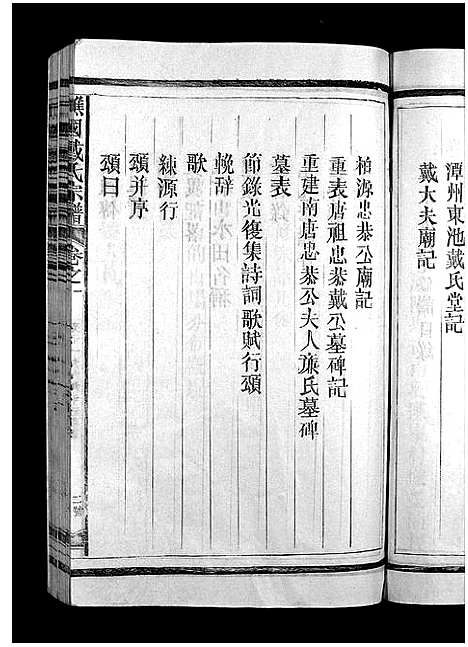 潭州東池戴氏堂記
戴大夫廟記
棺源忠恭公廟記
重表唐祖忠恭戴公墓碑記
重建南唐忠恭公夫人施氏墓碑
墓表
節錄光復集詩詞歌賦行頌
輓辞
歌
練源行
頌并序
頌曰
譙國戴氏宗譜
卷之一